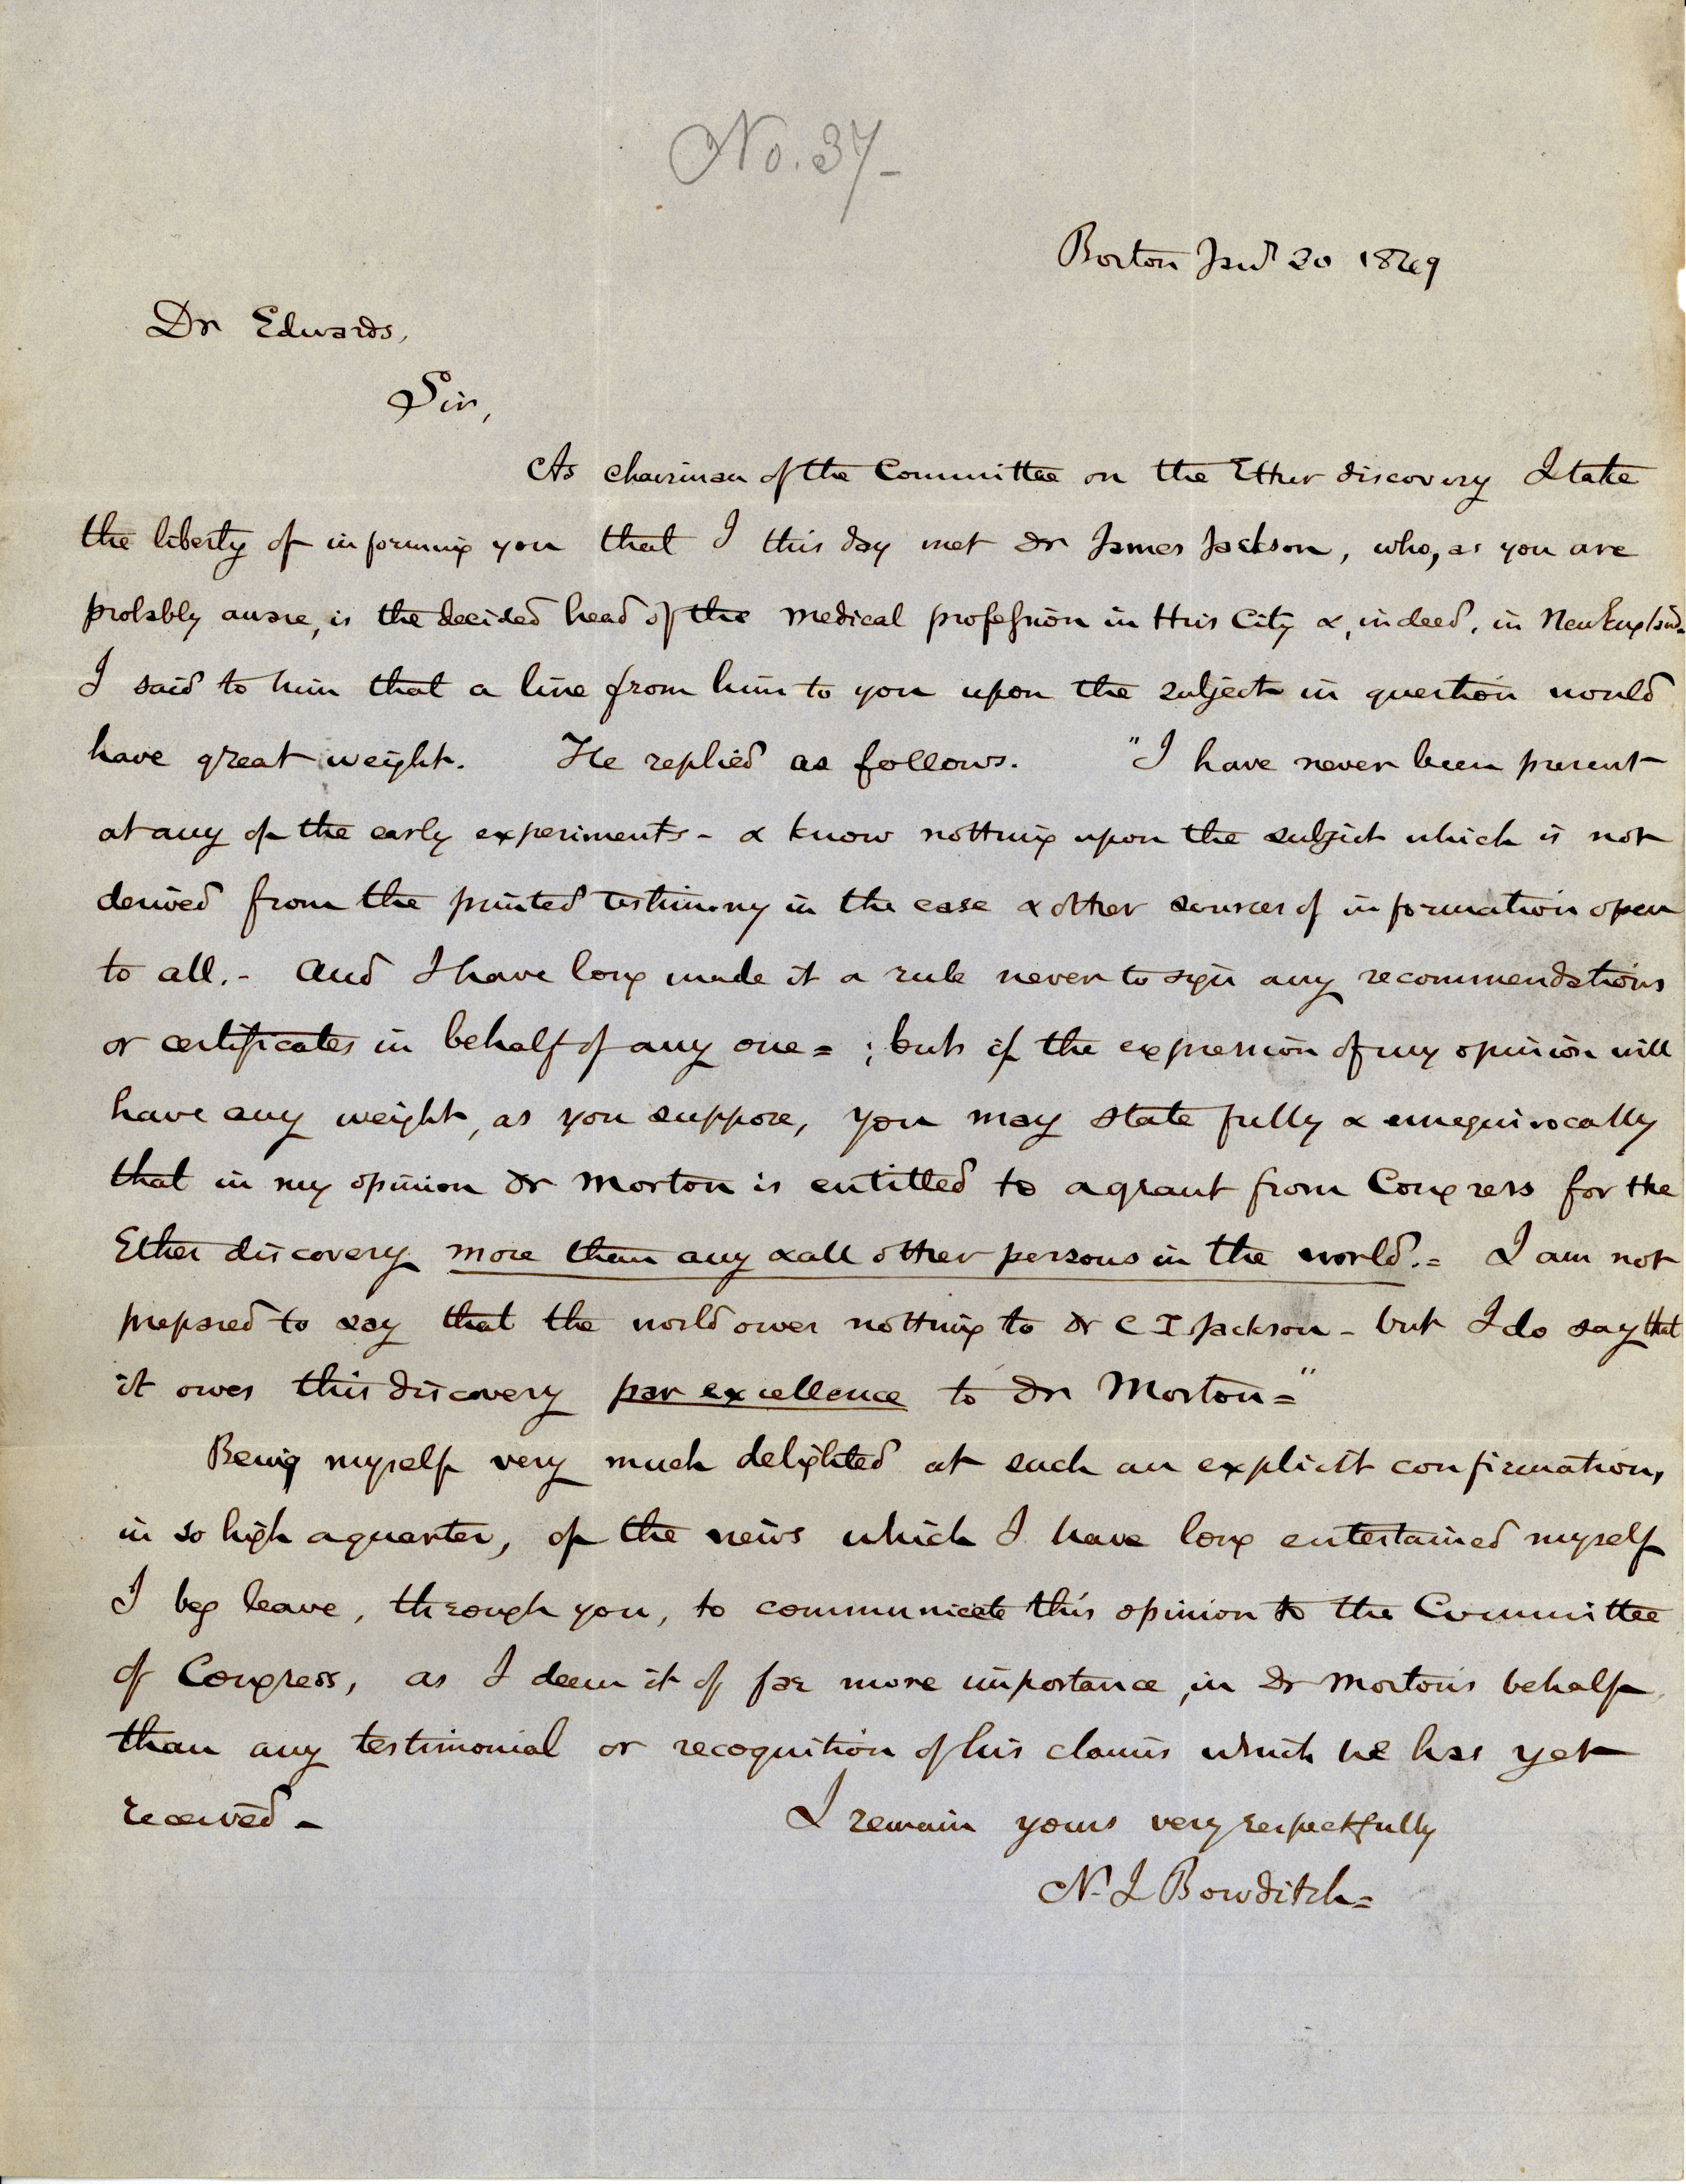 No. 37-
Boston Jany 20 1849
Dr Edwards,
Sir,
As chairman of the Committee on the Ether discovery I take
the liberty of informing you that I this day met Dr James Jackson, who, as you are
probably aware, is the decided head of the medical profession in this City &, indeed, in New England.
I said to him that a line from him to you upon the subject in question would
have great weight. He replied as follows. "I have never been present
at any of the early experiments - & know nothing upon the subject which is not
derived from the printed testimony in the case & other sources of information open
to all. - And I have long made it a rule never to sign any recommendations
or certificates in behalf of any one = ; but if the expression of my opinion will
have any weight, as you suppose, you may state fully & unequivocally
that in my opinion Dr Morton is entitled to a grant from Congress for the
Ether discovery more than any & all other persons in the world. = I am not
prepared to say that the world owes nothing to Dr C T Jackson - but I do say that
it owes this discovery par excellence to Dr Morton = "
Being myself very much delighted at such an explicit confirmation,
in so high a quarter, of the views which I have long entertained myself
I beg leave, through you, to communicate this opinion to the Committee
of Congress, as I deem it of far more importance, in Dr Morton's behalf,
than any testimonial or recognition of his claims which he has yet
received -
I remain yours very respectfully
N. I Bowditch =